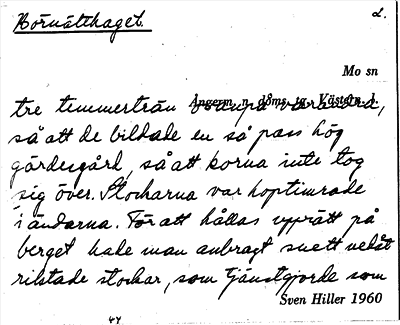 Hörnätthaget.
2.
Mo sn
tre timmerträn ovanpå varandra,
så att de bildade en så pass hög
gärdesgård, så att korna inte tog
sig över. Stockarna var hoptimrade
i ändarna. För att hållas upprätt på
berget hade man anbragt snett nedåt
riktade stockar, som tjänstgjorde som
Sven Hiller 1960
44